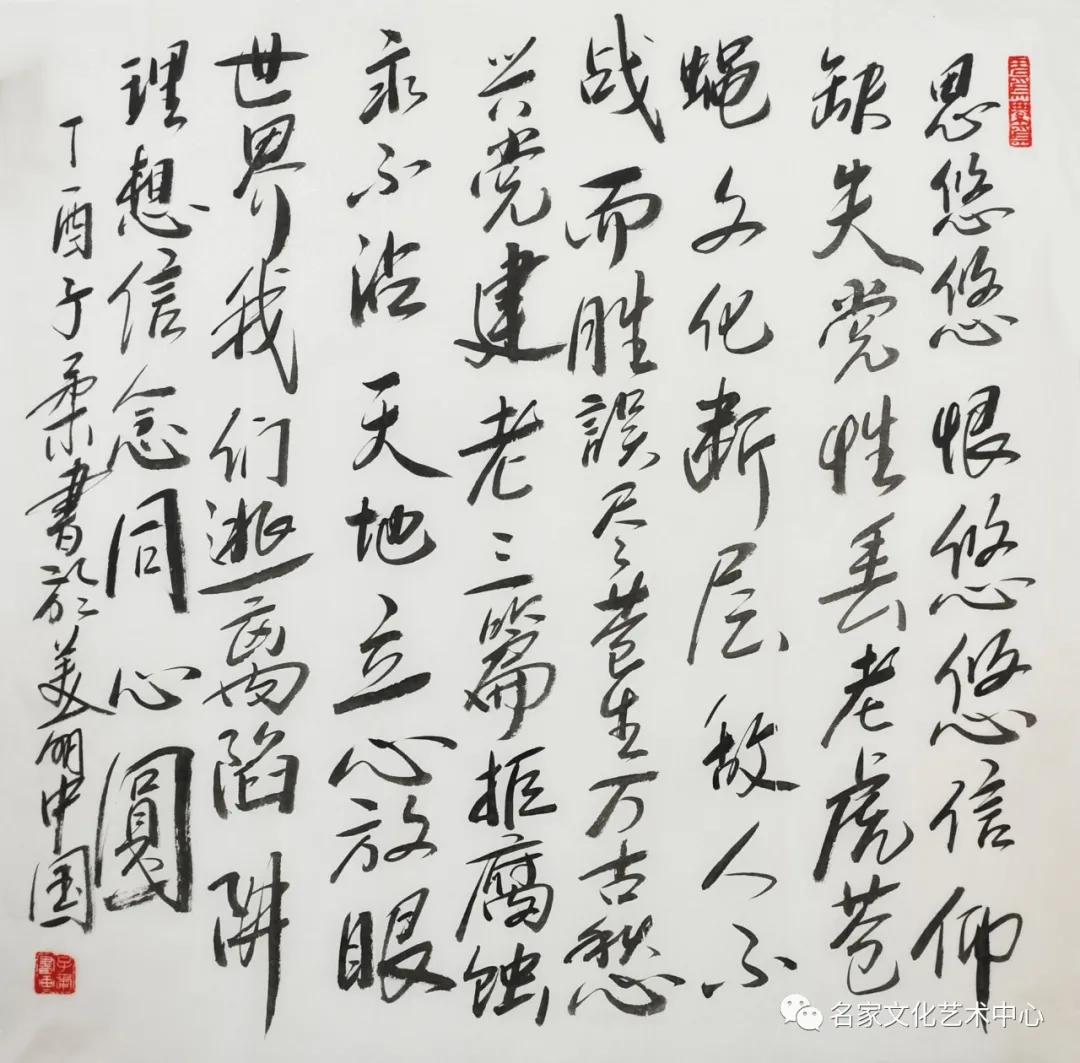 思悠悠恨悠悠信仰
缺失党性丢老虎苍
蝇文化断层敌人不
战而胜誤尽苍生万古愁
兴党建老三篇拒腐蚀
永不沾天地立心放眼
世界我们逃离陷阱
理想信念同心圓
丁酉子柔書於美丽中国
名家文化艺术中心